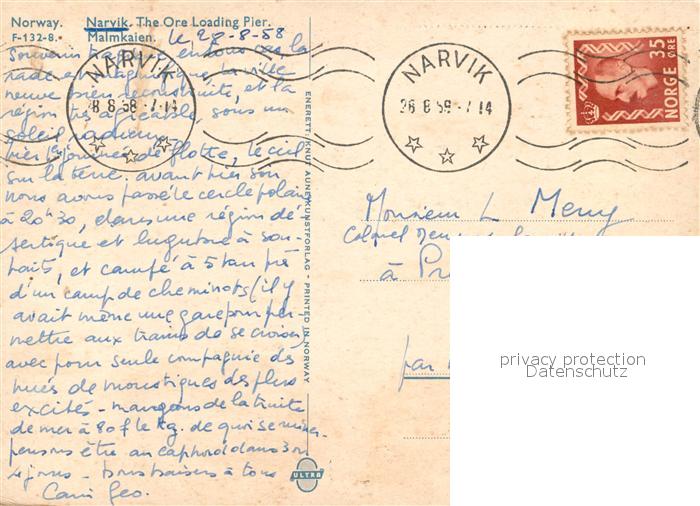 Norway. Narvik. The Ore Loading Pier.
F-132-8. Malmkaien. le 28-8-58
Souvenir de
rade et magnifique, la ville
neuve bien reconstruite, et la
région très agréable, sous un
soleil radieux
hier journée de flotte, le ciel
sur la terre. avant hier soir
nous avons passé le cercle polaire
à 20h30, dans une région dé-
sertique et lugubre à sou-
haits, et campé à 5 km près
d'un camp de cheminots (il y
avait même une gare pour per-
mettre aux trains de se croiser
avec pour seule compagnie des
nuées de moustiques des plus
excités - mangeons de la truite
de mer à 80f le kg. de quoi se
pensons être au cap nord dans 3 ou
4 jours - bons baisers à tous
Geo.
NARVIK
8.8.58-7.14
NARVIK
26 8 59-7 14
NORGE 35 ØRE
ENERETT: KNUT AUNE KUNSTFORLAG - PRINTED IN NORWAY
ULTRA
Monsieur L Meny
Colonel
à
par
privacy protection
Datenschutz